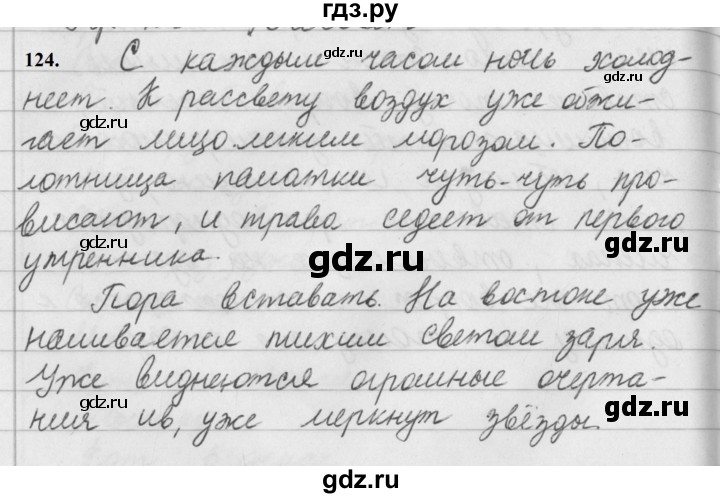 гдз.ру
124. С каждым часом ночь холод-
неет. К рассвету воздух уже обжи-
гает лицо легким морозом. По-
лотнища палатки чуть-чуть про-
висают, и трава седеет от первого
утренника.
Пора вставать. На востоке уже
наливается тихим светом заря.
Уже виднеются огромные очерта-
ния ив, уже меркнут звёзды.
gdz.ru
gdz.ru
gdz.ru
gdz.ru
gdz.ru
gdz.ru
gdz.ru
gdz.ru
gdz.ru
gdz.ru
gdz.ru
gdz.ru
gdz.ru